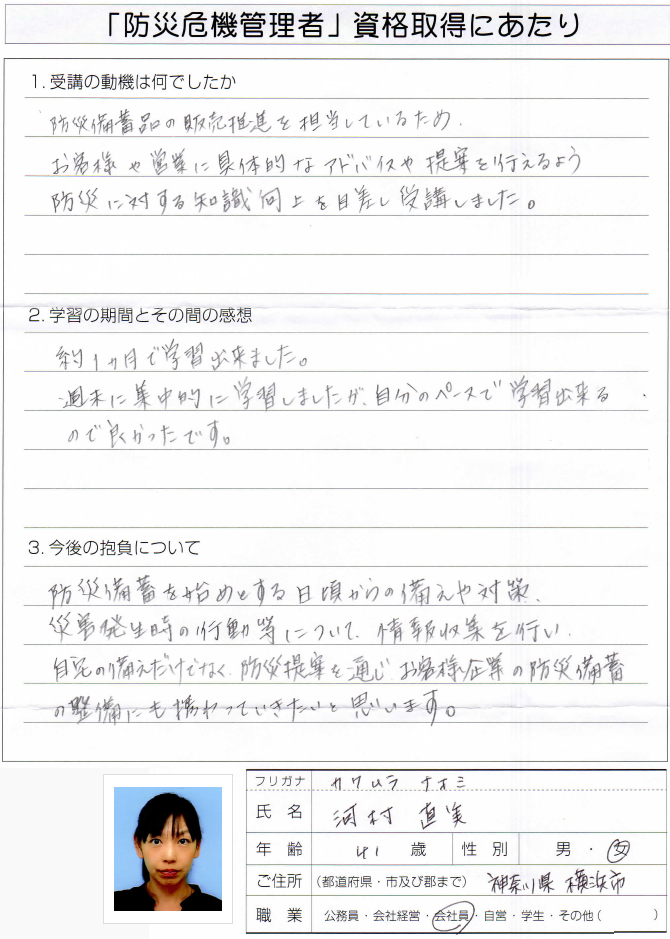 「防災危機管理者」資格取得にあたり
1. 受講の動機は何でしたか
防災備蓄品の販売推進を担当しているため、
お客様や営業に具体的なアドバイスや提案を行えるよう
防災に対する知識向上を目差し受講しました。
2. 学習の期間とその間の感想
約1ヵ月で学習出来ました。
週末に集中的に学習しましたが、自分のペースで学習出来る
ので良かったです。
3. 今後の抱負について
防災備蓄を始めとする日頃からの備えや対策、
災害発生時の行動等について、情報収集を行い、
自宅の備えだけでなく、防災提案を通じ、お客様企業の防災備蓄
の整備にも携わっていきたいと思います。
フリガナ カワムラ ナオミ
氏名 河村 直美
年齢 41 歳 性別 男・女
ご住所 (都道府県・市及び郡まで) 神奈川県 横浜市
職業 公務員・会社経営・会社員・自営・学生・その他( )